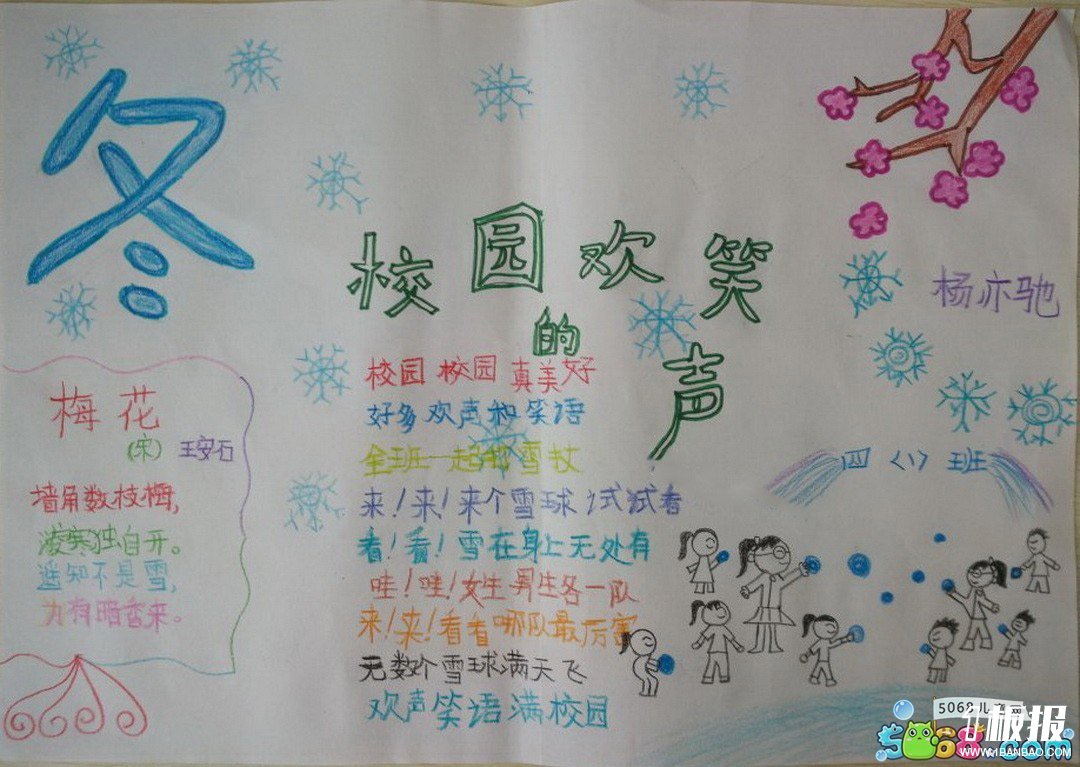 冬
校园欢笑
的
声
杨亦驰
四(1)班
梅花
(宋) 王安石
墙角数枝梅,
凌寒独自开。
遥知不是雪,
为有暗香来。
校园 校园 真美好
好多欢声和笑语
全班一起打雪仗
来!来!来个雪球试试看
看!看!雪在身上无处有
哇!哇!女生男生各一队
来!来!看看哪队最厉害
无数个雪球满天飞
欢声笑语满校园
5068儿童网
板报
WWW.1BANBAO.COM
5068.com